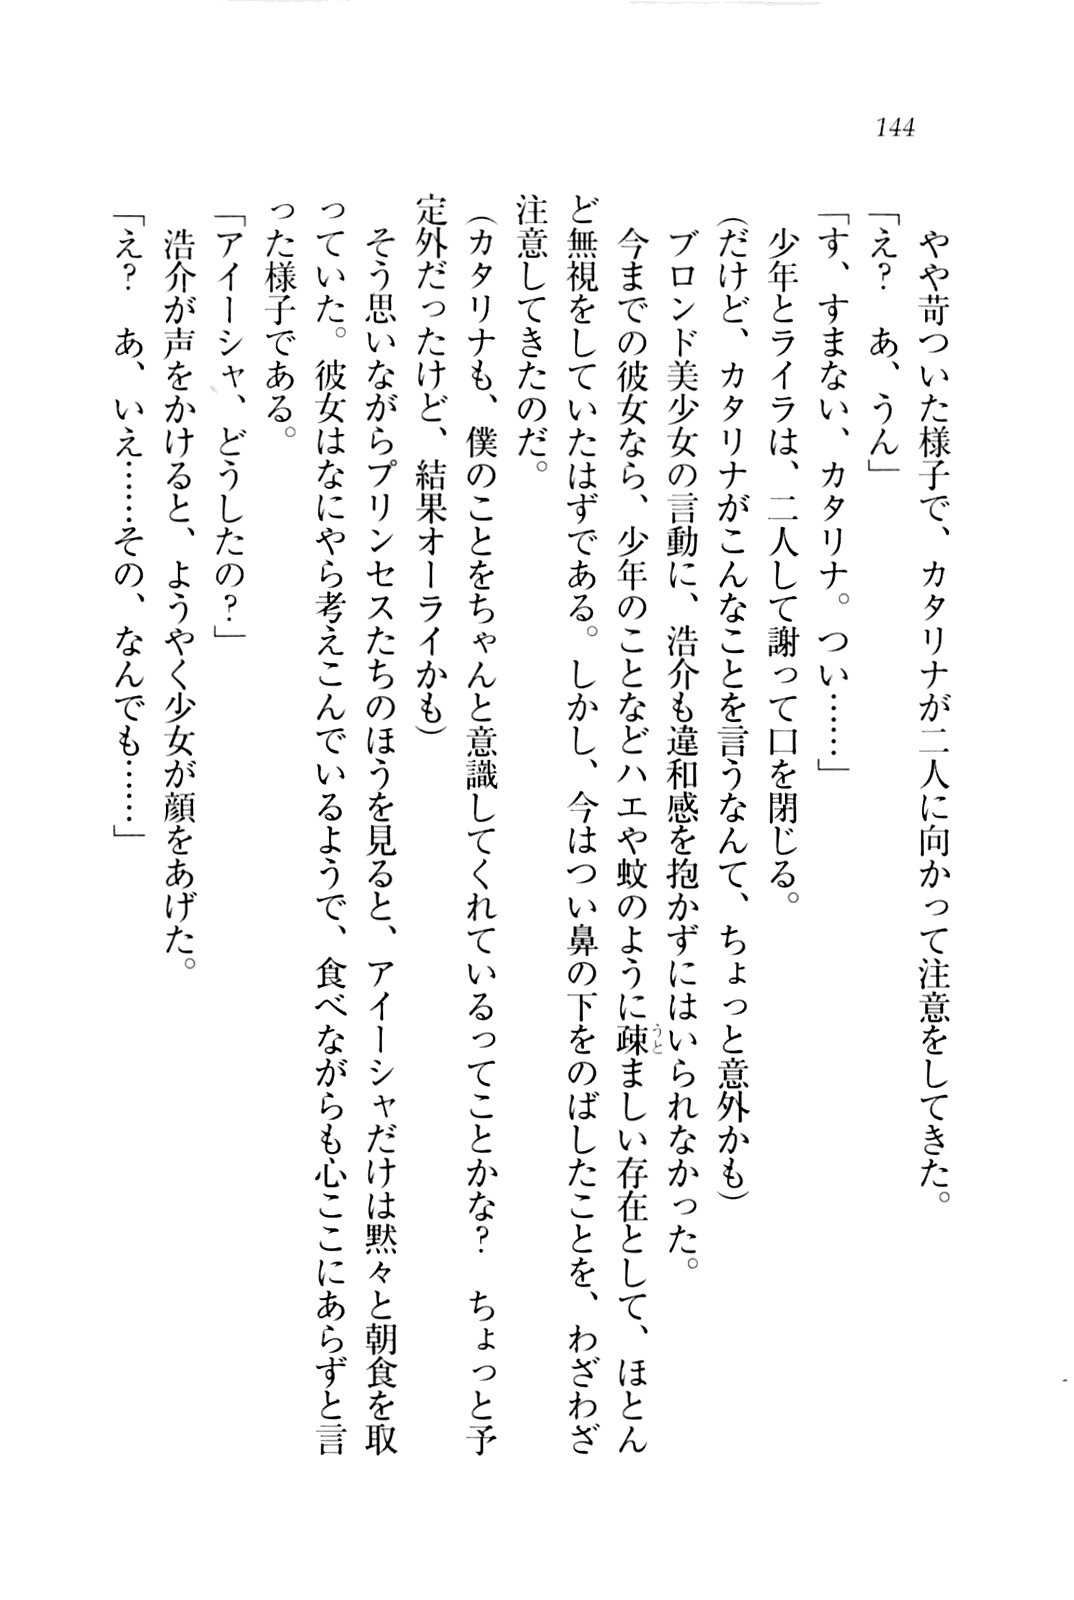 144
やや苛ついた様子で、カタリナが二人に向かって注意をしてきた。
「え？　あ、うん」
「す、すまない、カタリナ。つい……」
少年とライラは、二人して謝って口を閉じる。
（だけど、カタリナがこんなことを言うなんて、ちょっと意外かも）
ブロンド美少女の言動に、浩介も違和感を抱かずにはいられなかった。
今までの彼女なら、少年のことなどハエや蚊のように疎ましい存在として、ほとん
ど無視をしていたはずである。しかし、今はつい鼻の下をのばしたことを、わざわざ
注意してきたのだ。
（カタリナも、僕のことをちゃんと意識してくれているってことかな？　ちょっと予
定外だったけど、結果オーライかも）
そう思いながらプリンセスたちのほうを見ると、アイーシャだけは黙々と朝食を取
っていた。彼女はなにやら考えこんでいるようで、食べながらも心ここにあらずと言
った様子である。
「アイーシャ、どうしたの？」
浩介が声をかけると、ようやく少女が顔をあげた。
「え？　あ、いえ……その、なんでも……」